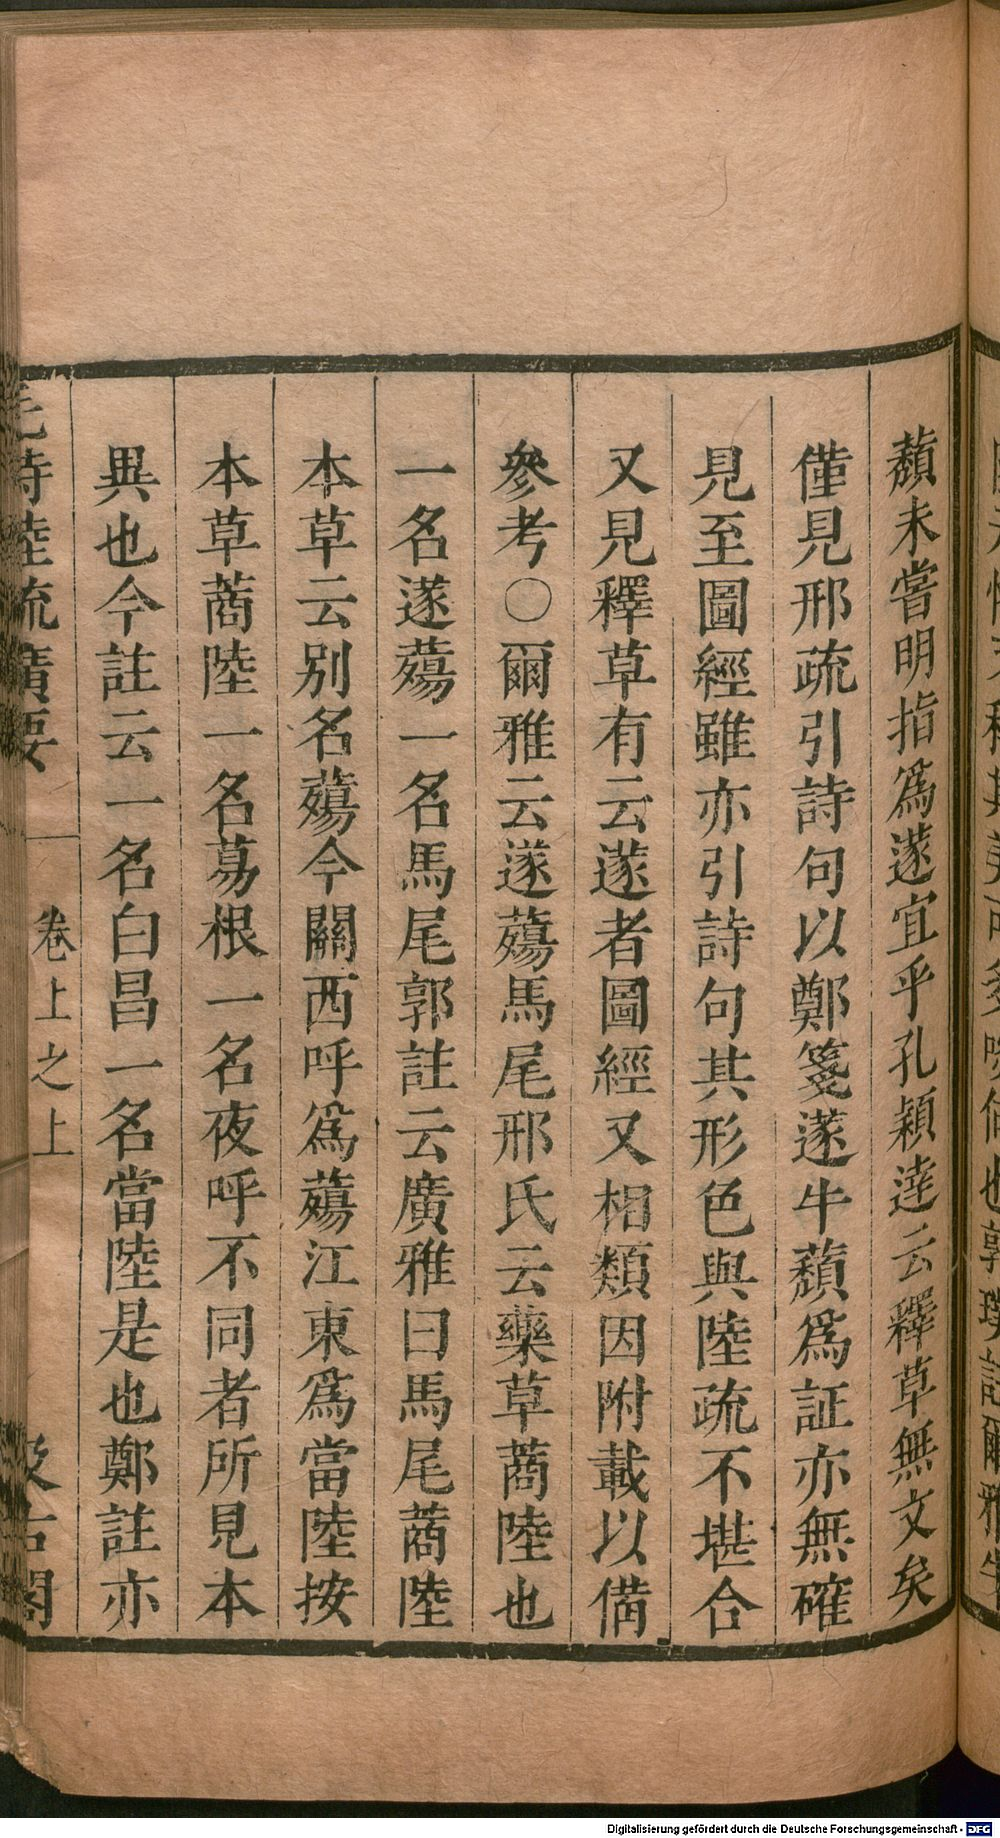 蘈未嘗明指爲蓫宜乎孔穎達云釋草無文矣
僅見邢疏引詩句以鄭箋蓫牛蘈爲証亦無確
見至圖經雖亦引詩句其形色與陸疏不堪合
又見釋草有云蓫者圖經又相類因附載以備
參考〇爾雅云蓫薚馬尾邢氏云藥草蔏陸也
一名蓫薚一名馬尾郭註云廣雅曰馬尾蔏陸
本草云别名薚今關西呼爲薚江東爲當陸按
本草蔏陸一名募根一名夜呼不同者所見本
異也今註云一名白昌一名當陸是也鄭註亦
毛詩陸疏廣要 卷上之上 汲古閣
Digitalisierung gefördert durch die Deutsche Forschungsgemeinschaft - DFG